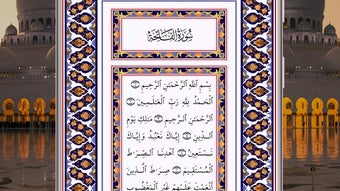 سُورَةُ الفَاتِحَةِ
بِسْمِ اللَّهِ الرَّحْمَٰنِ الرَّحِيمِ ۝
الْحَمْدُ لِلَّهِ رَبِّ الْعَٰلَمِينَ ۝
الرَّحْمَٰنِ الرَّحِيمِ ۝ مَٰلِكِ يَوْمِ
الدِّينِ ۝ إِيَّاكَ نَعْبُدُ وَإِيَّاكَ
نَسْتَعِينُ ۝ اهْدِنَا الصِّرَٰطَ
الْمُسْتَقِيمَ ۝ صِرَٰطَ الَّذِينَ
أَنْعَمْتَ عَلَيْهِمْ غَيْرِ الْمَغْضُوبِ